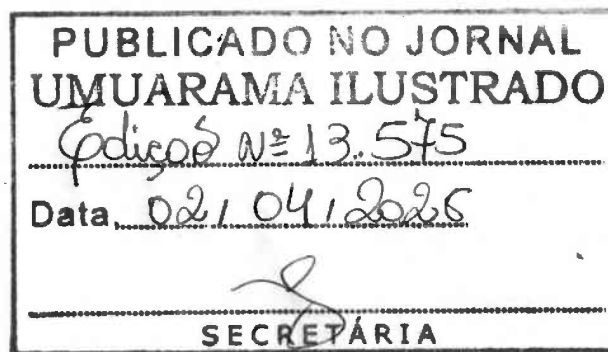 PUBLICADO NO JORNAL
UMUARAMA ILUSTRADO
Edição Nº 13.575
Data, 02, 04, 2026
SECRETÁRIA